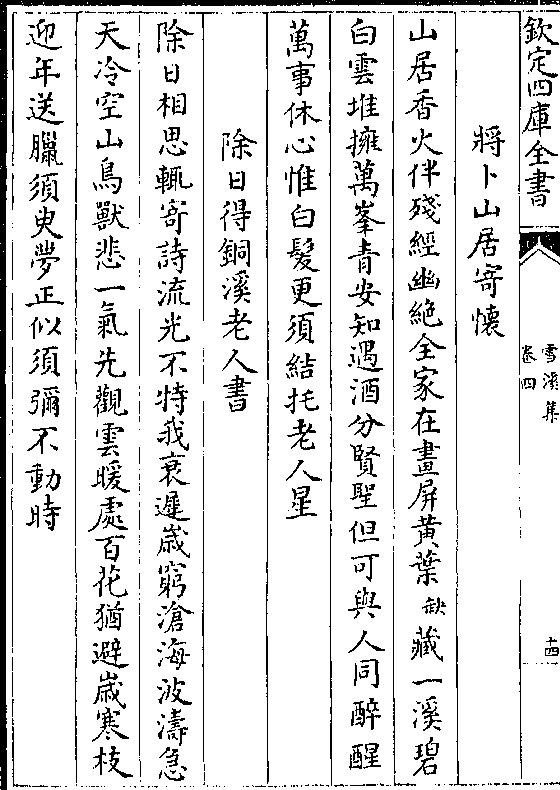 欽定四庫全書
雪溪集
卷四
十四
將卜山居寄懷
山居香火伴殘經幽絶全家在畫屏黄葉缺藏一溪碧
白雲堆擁萬峯青安知遇酒分賢聖但可與人同醉醒
萬事休心惟白髮更須結托老人星
除日得銅溪老人書
除日相思輒寄詩流光不特我衰遲嵗窮滄海波濤急
天冷空山鳥獸悲一氣先觀雲暖處百花猶避嵗寒枝
迎年送臘須臾夢正似須彌不動時